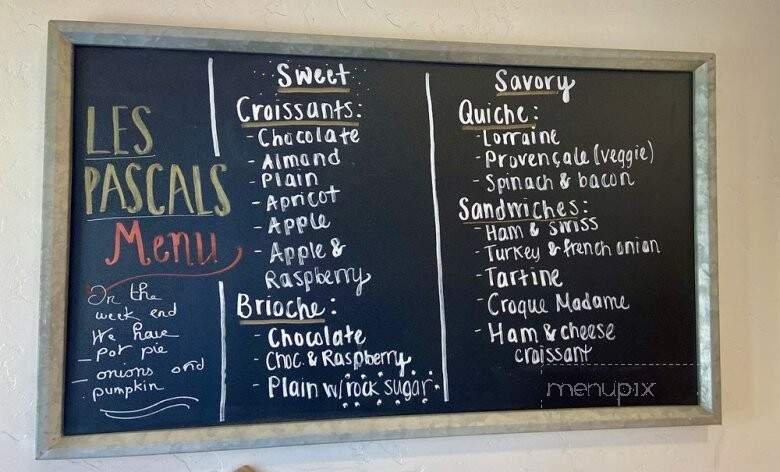 LES
PASCALS
Menu
On the
week end
We have
- pot pie
- onions and
pumpkin
Sweet
Croissants:
- Chocolate
- Almond
- Plain
- Apricot
- Apple
- Apple &
Raspberry
Brioche:
- Chocolate
- Choc. & Raspberry
- Plain w/rock sugar
Savory
Quiche:
- Lorraine
- Provençale (veggie)
- Spinach & bacon
Sandwiches:
- Ham & swiss
- Turkey & french onion
- Tartine
- Croque Madame
- Ham & cheese
croissant
menupix